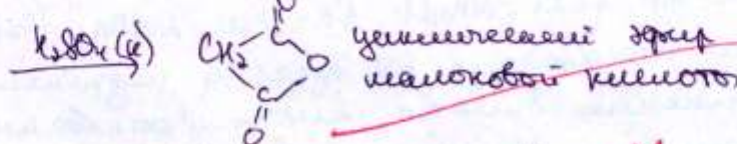 H₂SO₄(к)
O
C
CH₂
O
C
O
циклический эфир
малоновой кислоты